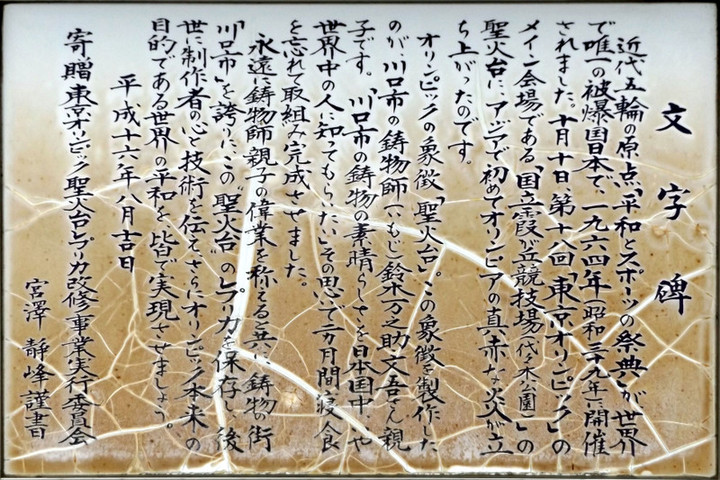 文字碑
近代五輪の原点「平和とスポーツの祭典」が世界
で唯一の被爆国日本で、一九六四年（昭和三十九年）に開催
されました。十月十日、第十八回「東京オリンピック」の
メイン会場である「国立霞が丘競技場（代々木公園）」の
聖火台に、アジアで初めてオリンピアの真赤な炎が立
ち上がったのです。
オリンピックの象徴「聖火台」。この象徴を製作した
のが、川口市の鋳物師（いもじ）鈴木万之助・文吾さん親
子です。「川口市の鋳物の素晴らしさを日本国中、や
世界中の人に知ってもらいたい」その思いで二カ月間、寝食
を忘れて取組み完成させました。
永遠に鋳物師親子の偉業を称えると共に、鋳物の街
「川口市」を誇りに、この"聖火台"のレプリカを保存し、後
世に制作者の心と技術を伝え、さらにオリンピック本来の
目的である世界の平和を、皆で実現させましょう。
平成十六年八月吉日
寄贈 東京オリンピック聖火台レプリカ改修事業実行委員会
宮澤 静峰 謹書